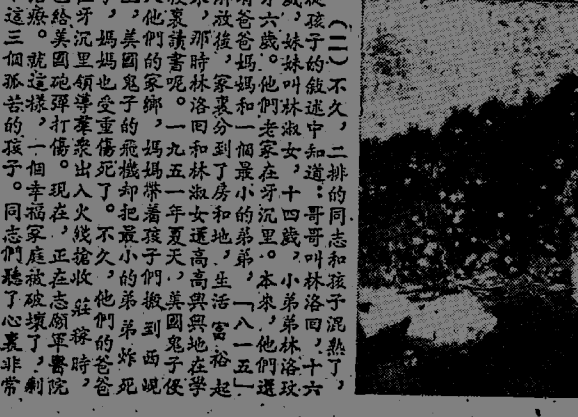 (二)不久,二排的同志和孩子混熟了,
從孩子的敘述中知道:哥哥叫林洛回,十六
歲,妹妹叫林淑女,十四歲,小弟弟林洛玟
才六歲。他們老家在牙沉里。本來,他們還
有爸爸媽媽和一個最小的弟弟,「八一五」
解放後,家裏分到了房和地,生活富裕起
來,那時林洛回和林淑女還高高興興地在學
校裏讀書呢。一九五一年夏天,美國鬼子侵
入他們的家鄉,媽媽帶着孩子們搬到西峴
里,美國鬼子的飛機却把最小的弟弟炸死
,媽媽也受重傷死了。不久,他們的爸爸
在牙沉里領導羣衆出入火綫搶收莊稼時,
也給美國砲彈打傷。現在,正在志願軍醫院
治療。就這樣,一個幸福家庭被破壞了,剩
這三個孤苦的孩子。同志們聽了心裏非常